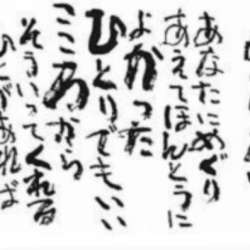 あなたにめぐり
あえてほんとうに
よかった
ひとりでもいい
こころから
そういってくれる
ひとがあれば